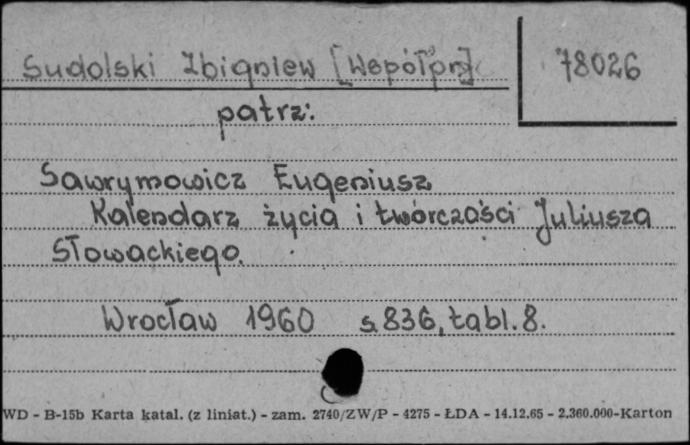 Sudolski Zbigniew [Współpr]
78026
patrz:
Sawrymowicz Eugeniusz
Kalendarz życia i twórczości Juliusza
Słowackiego.
Wrocław 1960 s. 836, tabl. 8.
WD - B-15b Karta katal. (z liniat.) - zam. 2740/ZW/P - 4275 - ŁDA - 14.12.65 - 2.360.000-Karton